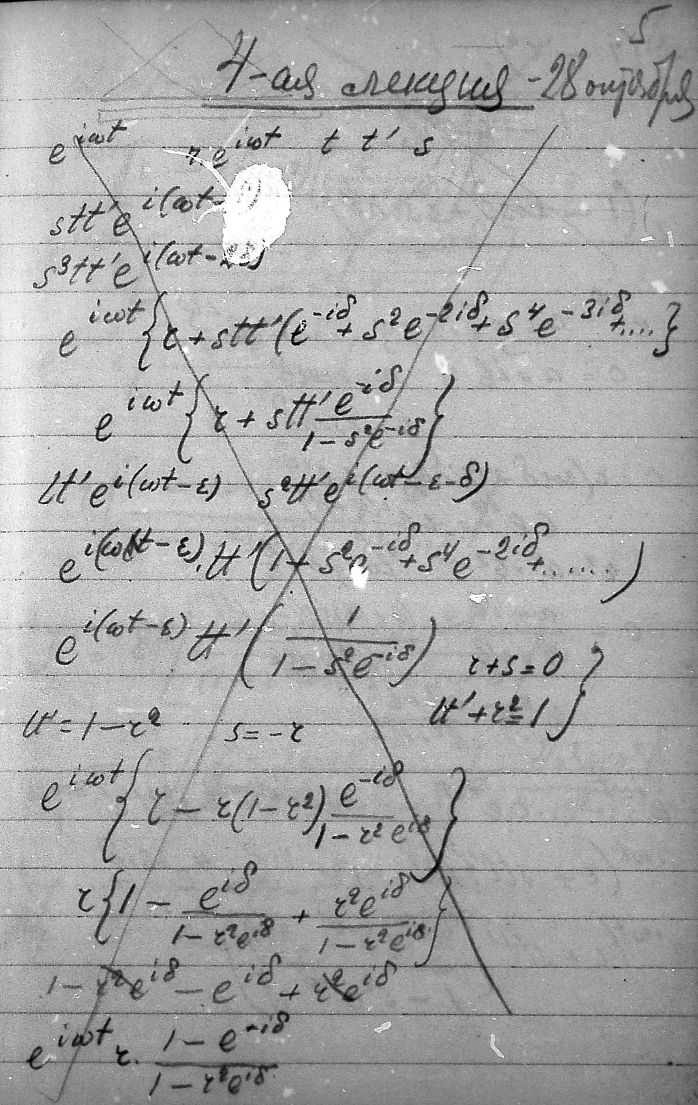 5
4-ая лекция - 28 октября
e^{iωt} r e^{iωt} t t' s
stt'e^{i(ωt-
s^3tt'e^{i(ωt-2δ)}
e^{iωt}{r + stt'(e^{-iδ} + s^2e^{-2iδ} + s^4e^{-3iδ} + ....}
e^{iωt}{r + stt' \frac{e^{-iδ}}{1 - s^2e^{-iδ}}}
tt'e^{i(ωt-ε)} s^2tt'e^{i(ωt-ε-δ)}
e^{i(ωt-ε)}.tt'(1 + s^2e^{-iδ} + s^4e^{-2iδ} + ......)
e^{i(ωt-ε)}tt'(\frac{1}{1 - s^2e^{-iδ}}) r+s=0 }
tt'+r^2=1 }
tt' = 1-r^2 s=-r
e^{iωt}{r - r(1-r^2)\frac{e^{-iδ}}{1 - r^2e^{iδ}}}
r{1 - \frac{e^{iδ}}{1 - r^2e^{iδ}} + \frac{r^2e^{iδ}}{1 - r^2e^{iδ}}}
1 - r^2e^{iδ} - e^{iδ} + r^2e^{iδ}
e^{iωt} r. \frac{1 - e^{-iδ}}{1 - r^2e^{iδ}}